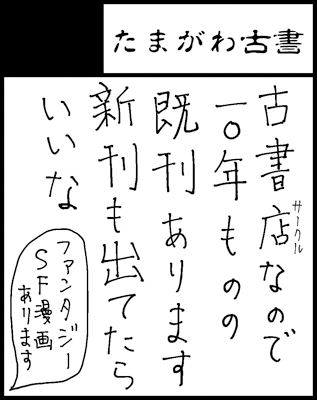 たまがわ古書
古書店なので
サークル
一〇年ものの
既刊あります
新刊も出てたら
いいな
ファンタジー
SF漫画
あります